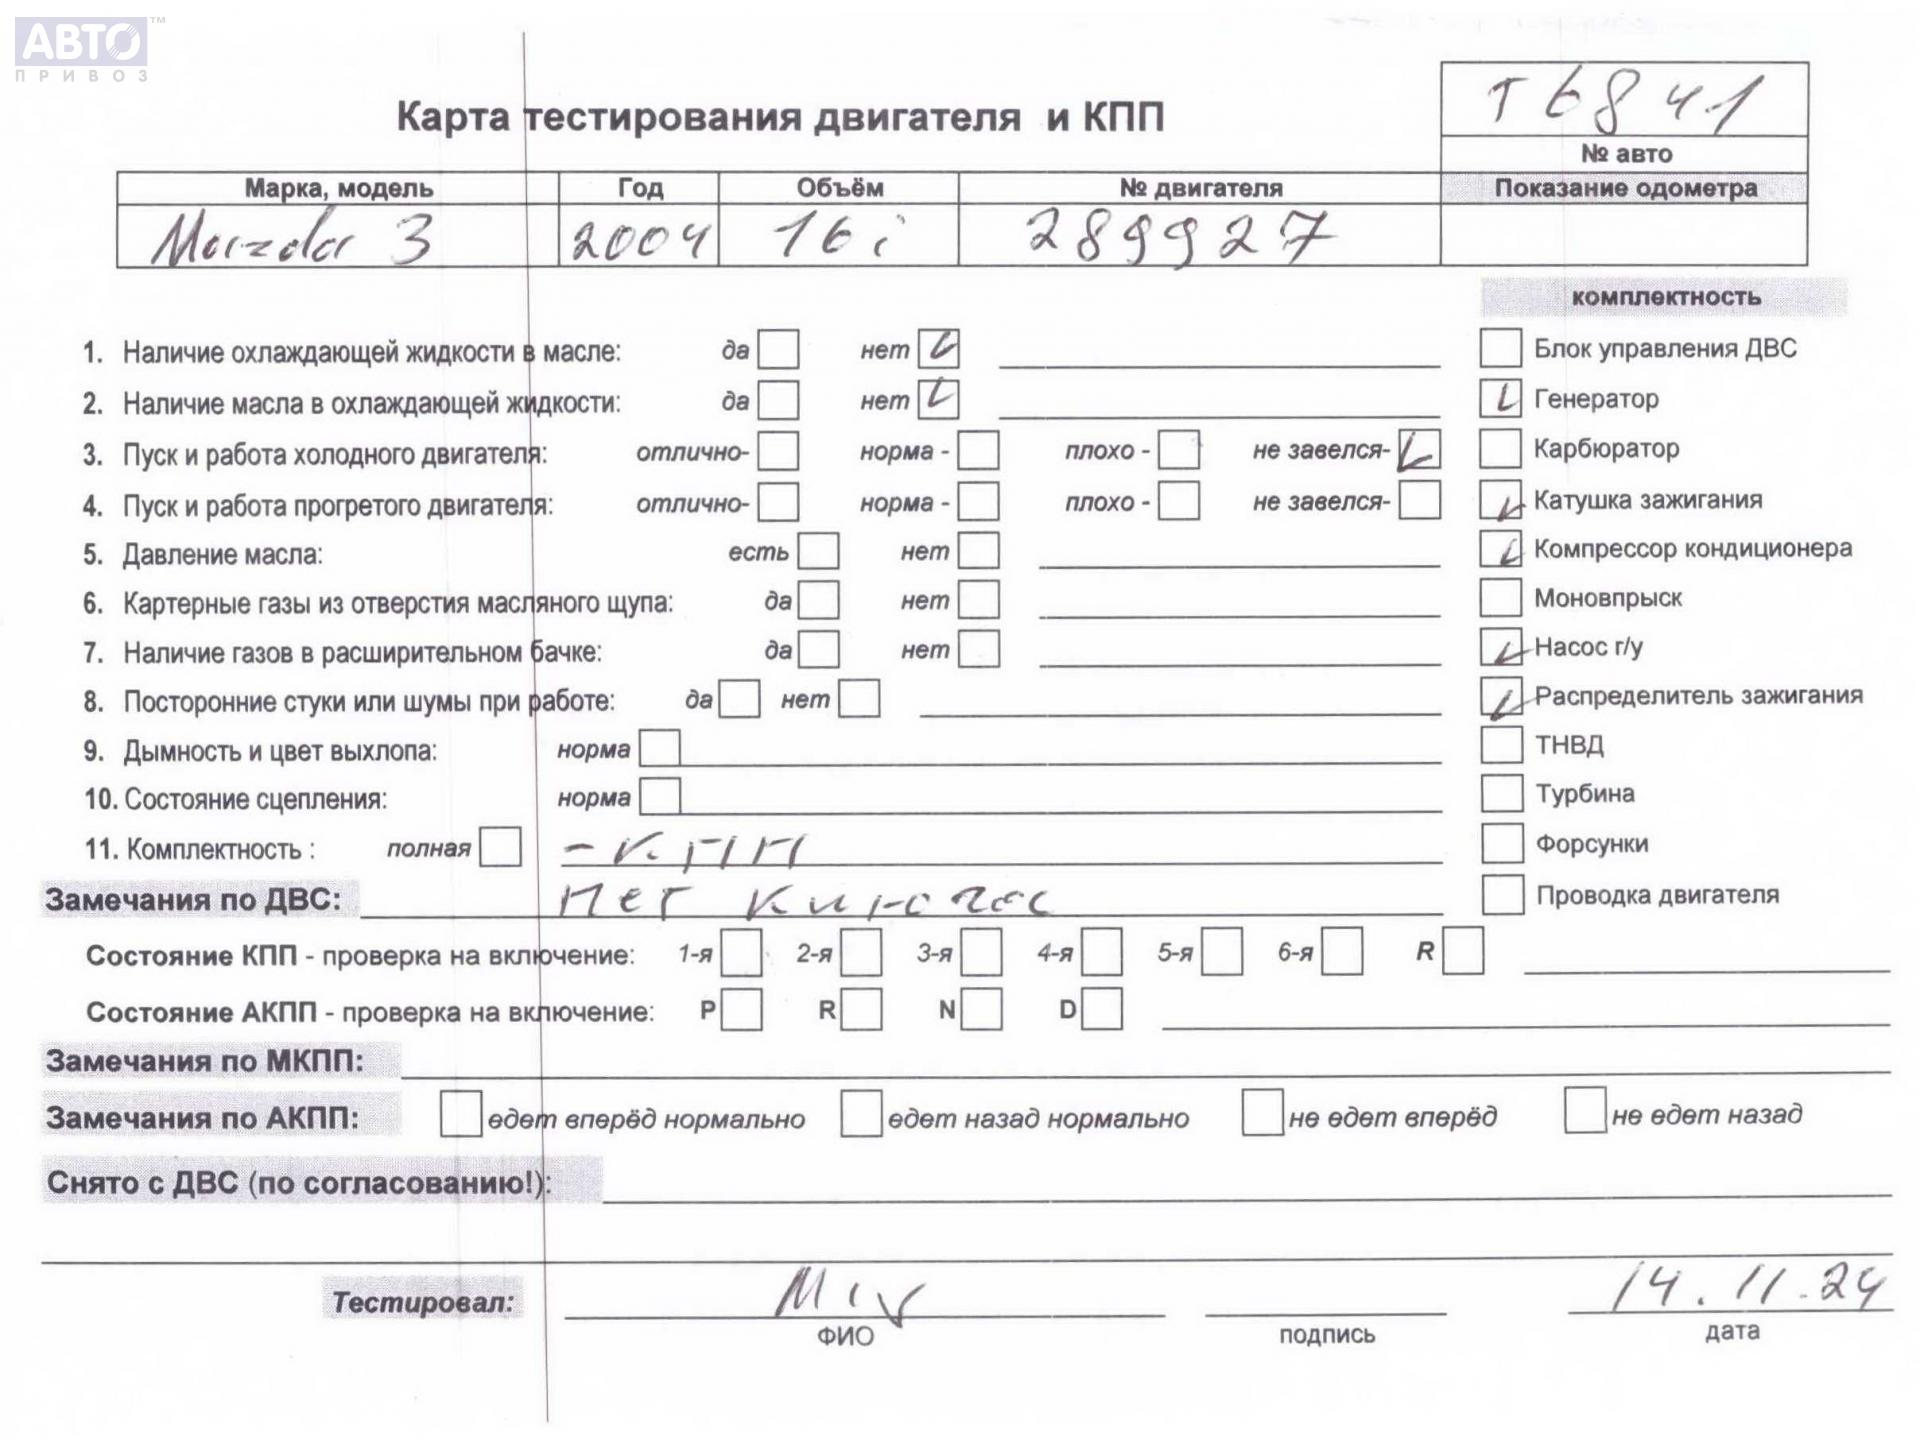 АВТО™
ПРИВОЗ
Карта тестирования двигателя и КПП
Т6841
№ авто
Марка, модель Год Объём № двигателя Показание одометра
Mazda 3 2004 16i 289927
комплектность
1. Наличие охлаждающей жидкости в масле: да нет Блок управления ДВС
2. Наличие масла в охлаждающей жидкости: да нет Генератор
3. Пуск и работа холодного двигателя: отлично- норма - плохо - не завелся- Карбюратор
4. Пуск и работа прогретого двигателя: отлично- норма - плохо - не завелся- Катушка зажигания
5. Давление масла: есть нет Компрессор кондиционера
6. Картерные газы из отверстия масляного щупа: да нет Моновпрыск
7. Наличие газов в расширительном бачке: да нет Насос г/у
8. Посторонние стуки или шумы при работе: да нет Распределитель зажигания
9. Дымность и цвет выхлопа: норма ТНВД
10. Состояние сцепления: норма Турбина
11. Комплектность : полная - КПП Форсунки
Замечания по ДВС: нет ключа Проводка двигателя
Состояние КПП - проверка на включение: 1-я 2-я 3-я 4-я 5-я 6-я R
Состояние АКПП - проверка на включение: P R N D
Замечания по МКПП:
Замечания по АКПП: едет вперёд нормально едет назад нормально не едет вперёд не едет назад
Снято с ДВС (по согласованию!):
Тестировал: 14.11.24
ФИО подпись дата